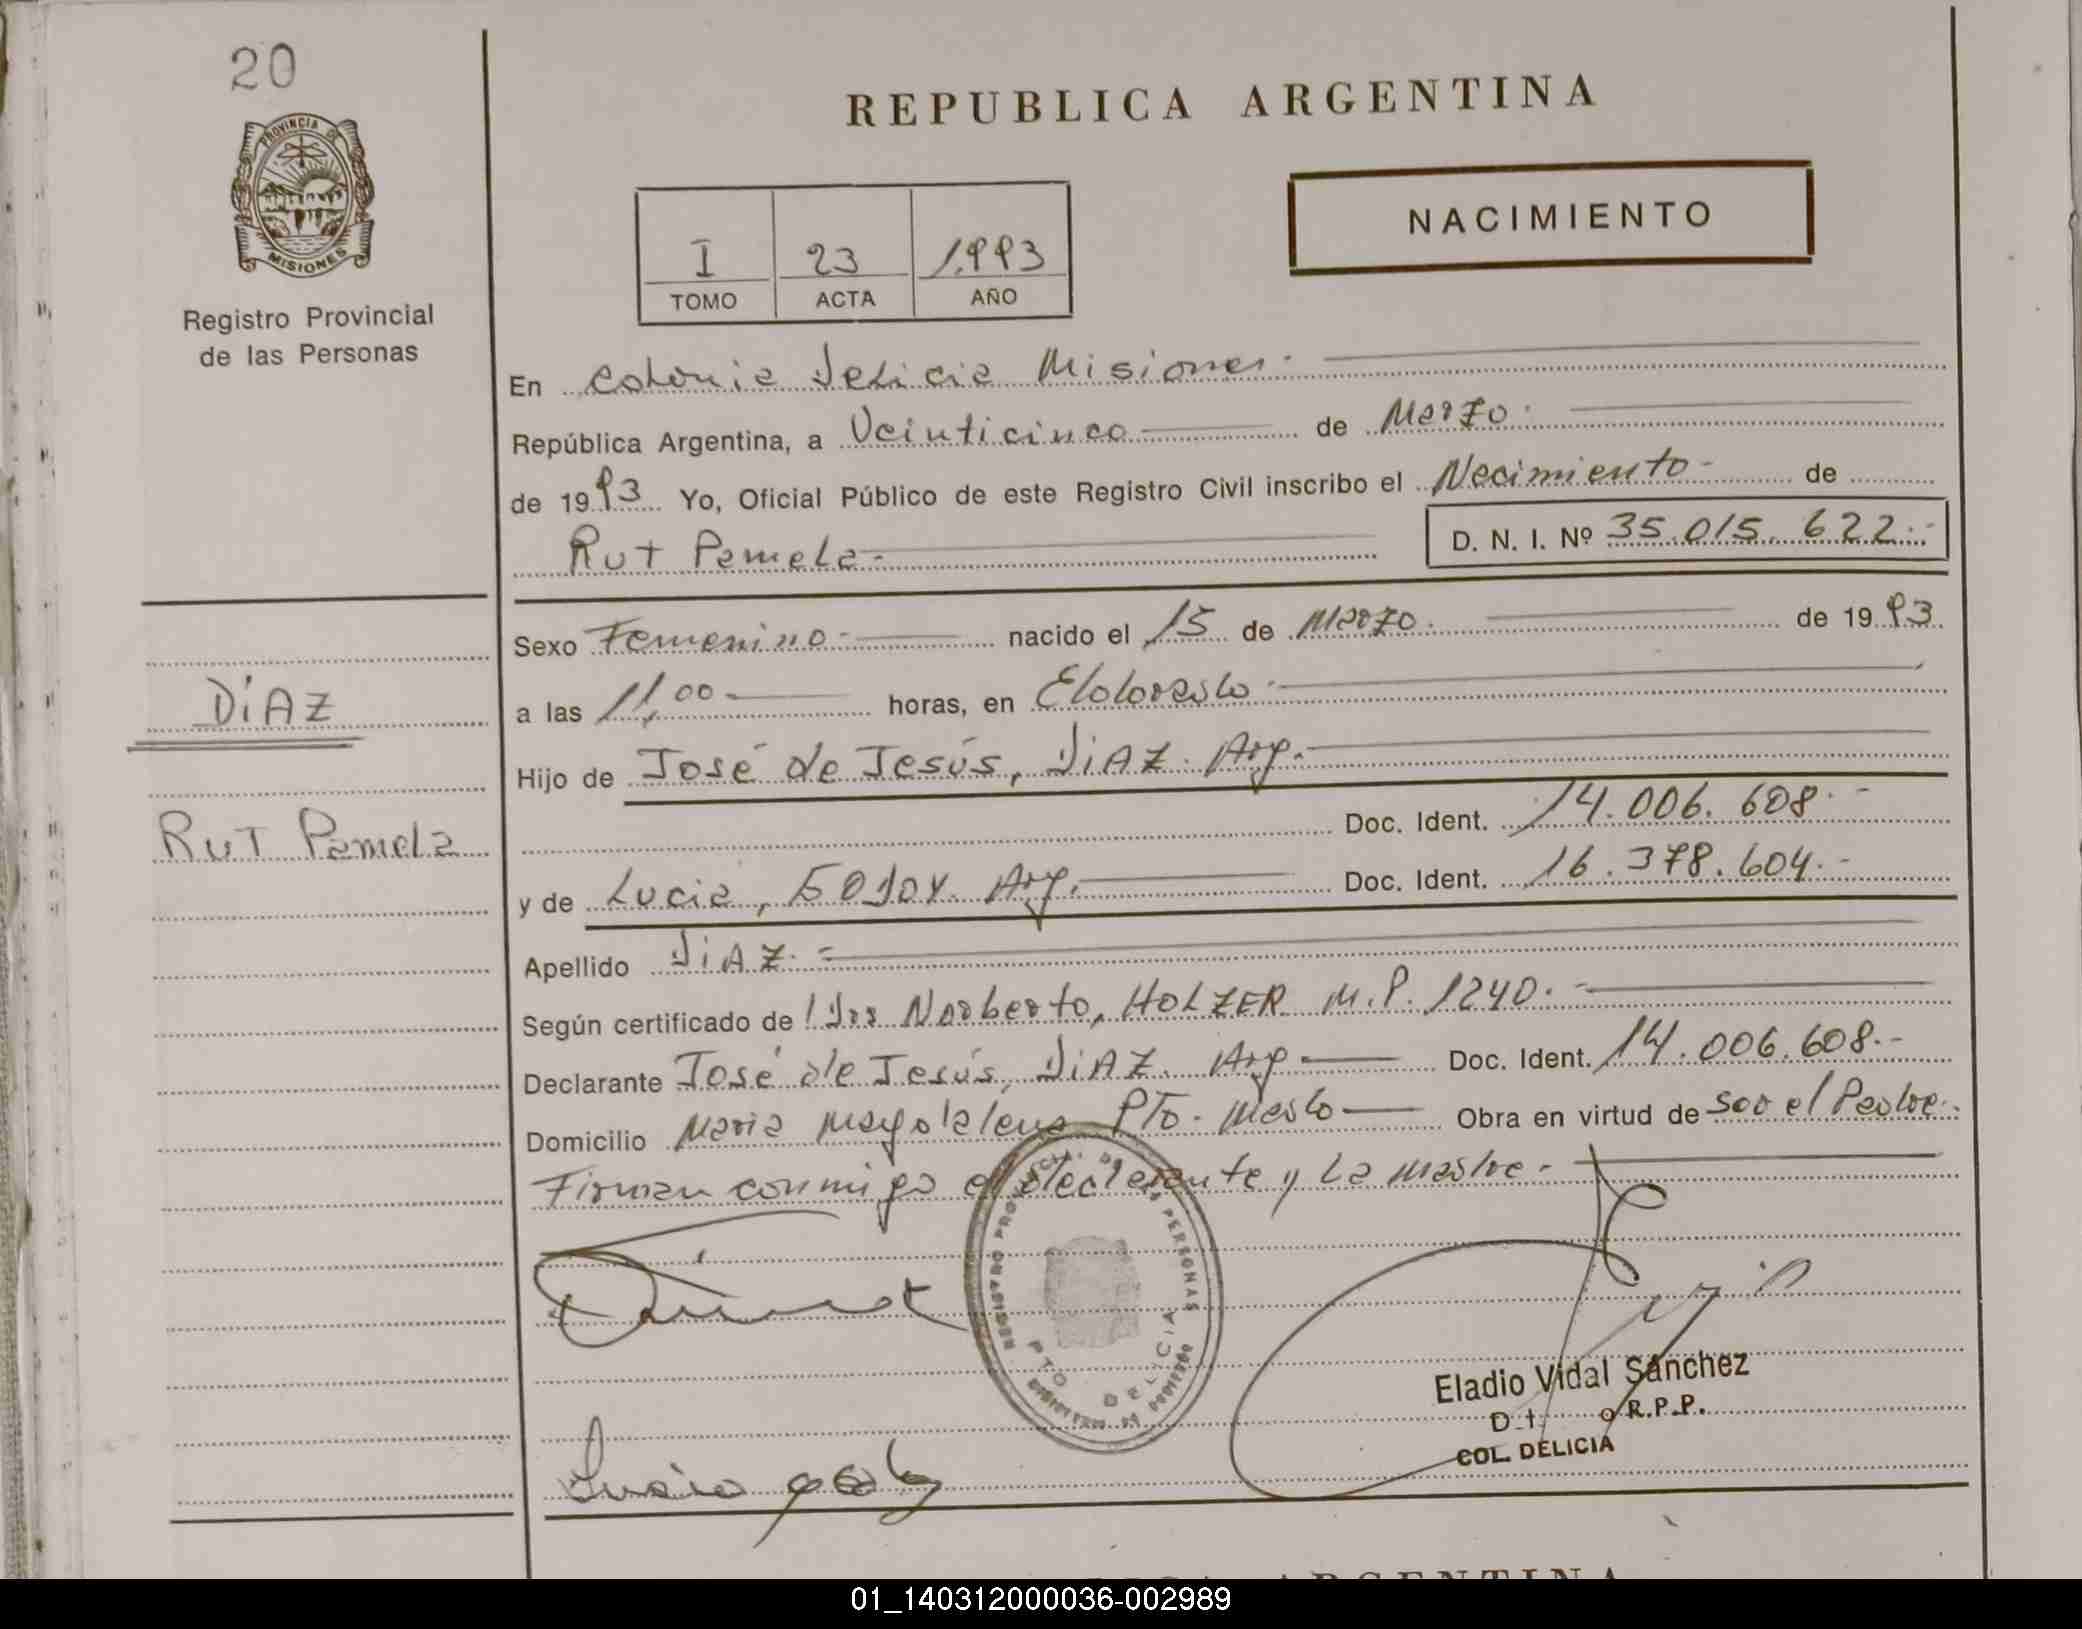 20
REPUBLICA ARGENTINA
PROVINCIA DE
MISIONES
NACIMIENTO
I 23 1.993
TOMO ACTA AÑO
Registro Provincial
de las Personas
En Colonia Delicia Misiones.
República Argentina, a Veinticinco de Marzo.
de 1993 Yo, Oficial Público de este Registro Civil inscribo el Nacimiento- de
Rut Pamela- D. N. I. Nº 35.015.622.-
Sexo Femenino.- nacido el 15 de Marzo. de 1993.
DíAZ
a las 11,00 horas, en Eldorado.
Hijo de José de Jesús, DiAZ. Arg.
Doc. Ident. 14.006.608.-
Rut Pamela
y de Lucia, GODOY. Arg. Doc. Ident. 16.378.604.-
Apellido DiAZ.-
Según certificado de Norberto, HOLZER M.P. 1240.-
Declarante José de Jesús, DiAZ. Arg Doc. Ident. 14.006.608.-
Domicilio Maria Magdalena Pto. Mado Obra en virtud de ser el Padre.
Firman conmigo el declarante y la madre.-
REGISTRO PROVINCIAL DE LAS PERSONAS
PTO DELICIA
Eladio Vidal Sánchez
R.P.P.
COL. DELICIA
Lucia
ARGENTINA
01_140312000036-002989